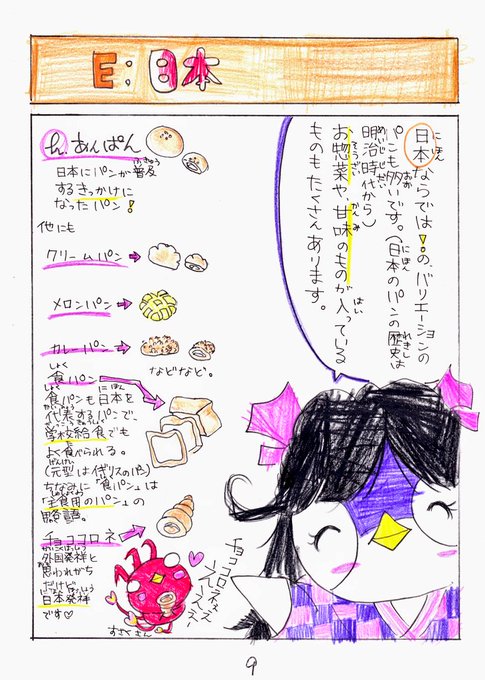 E:日本
日本ならでは!の、バリエーションの
パンも多いです。(日本のパンの歴史は
明治時代から)
お惣菜や、甘味のものが入っている
ものもたくさんあります。
h.あんぱん
日本にパンが普及
するきっかけに
なったパン!
他にも
クリームパン
メロンパン
カレーパン
などなど。
食パン
食パンも日本を
代表するパンで、
学校給食でも
よく食べられる。
(元型はイギリスの
ちなみに「食パン」は
「主食用のパン」の
略語。
チョココロネ
外国発祥と
思われがち
だけど、
日本発祥
です♡
チョココロネぇ
うぇぇ
うぇぇ!
9